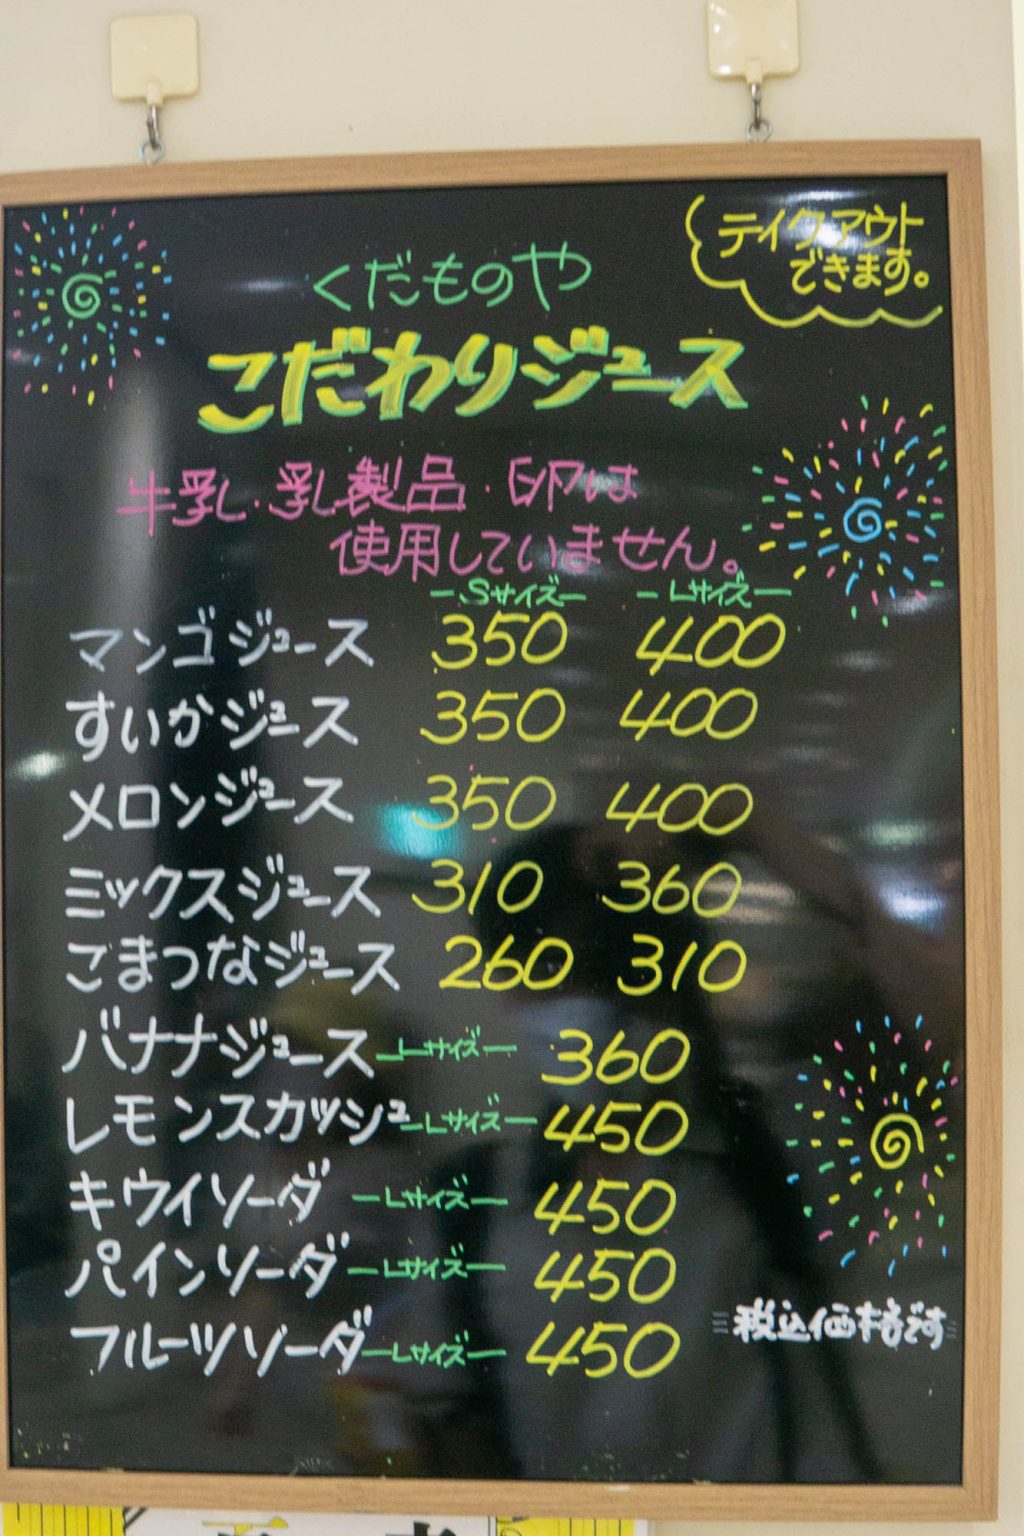 テイクアウト
できます。
くだものや
こだわりジュース
牛乳・乳製品・卵は
使用していません。
-Sサイズ- -Lサイズ-
マンゴジュース 350 400
すいかジュース 350 400
メロンジュース 350 400
ミックスジュース 310 360
こまつなジュース 260 310
バナナジュース -Lサイズ- 360
レモンスカッシュ -Lサイズ- 450
キウイソーダ -Lサイズ- 450
パインソーダ -Lサイズ- 450
フルーツソーダ -Lサイズ- 450
税込価格です